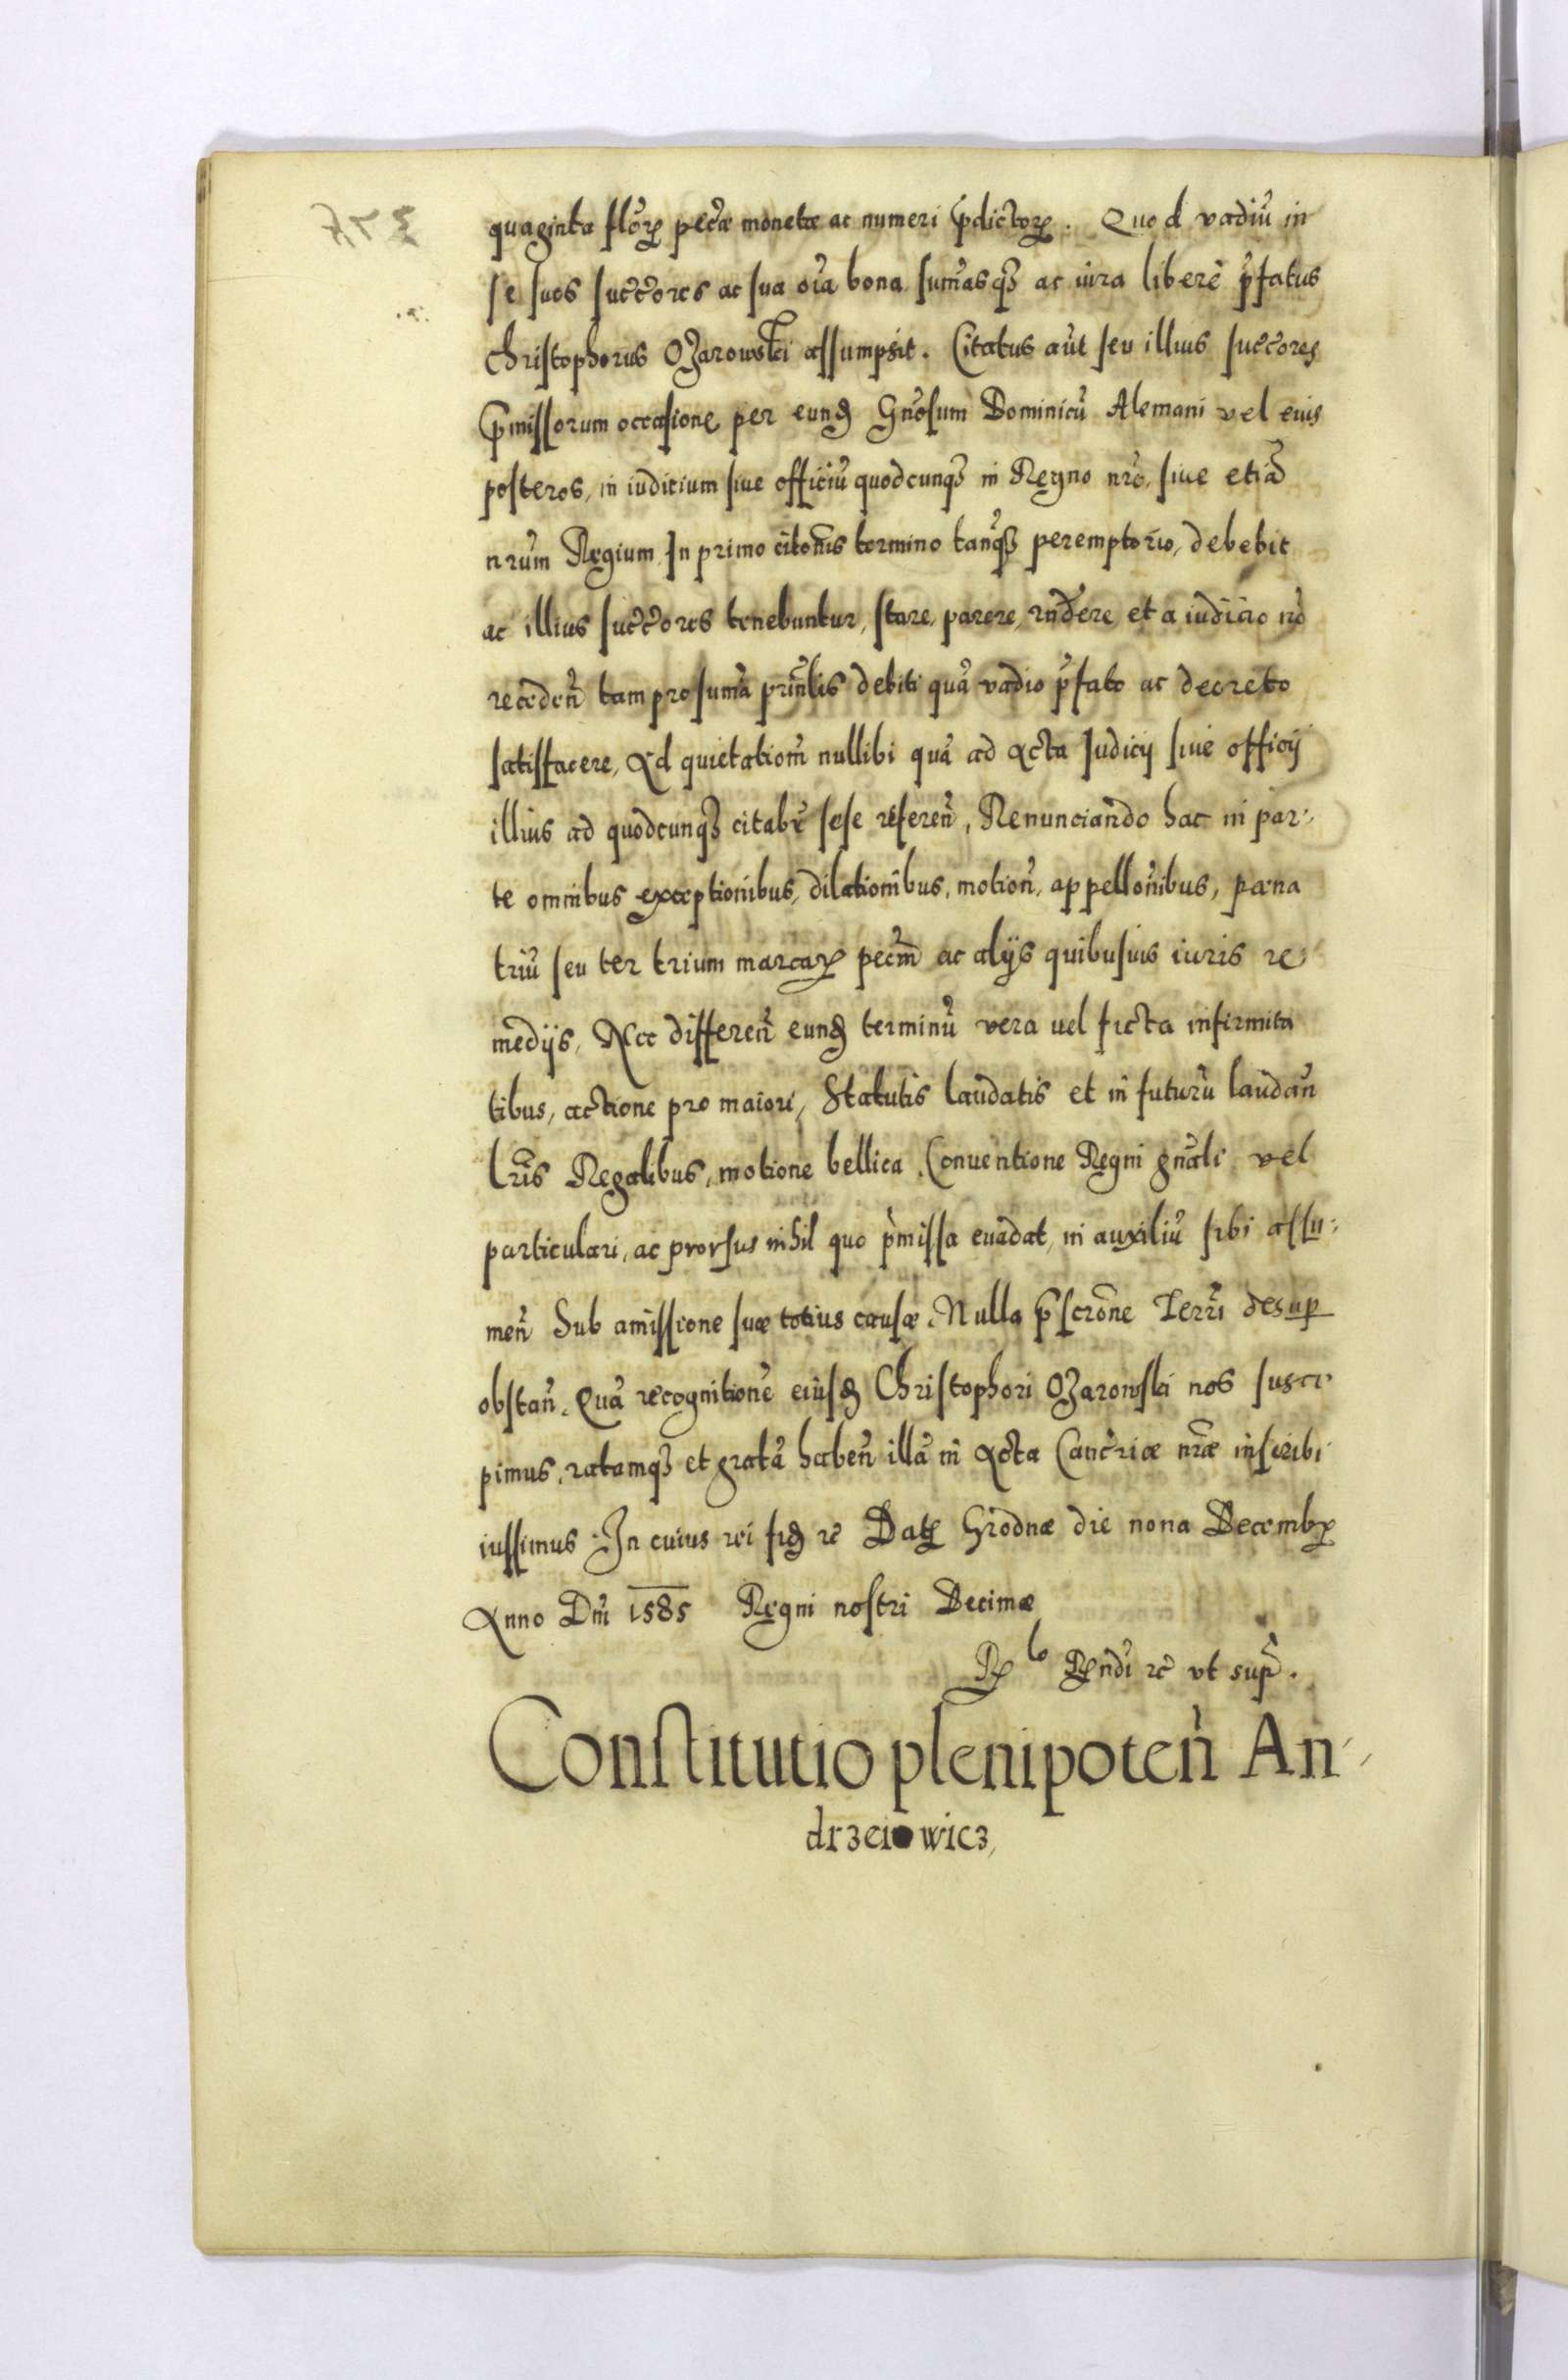 quaginta flor̃ꝝ pecũæ monetæ ac numeri p̃dictoꝝ. Quod vadiũ in
se suos succores ac sua oĩa bona sum̃asqꝫ ac iura libere p̃fatus
Christophorus Ożarowski assumpsit. Citatus aũt seu illius succores
p̃missorum occasione per eundẽ Gñosum Dominicũ Alemani vel eius
posteros, in iudicium siue officiũ quodcunqꝫ in Regno nr̃o, siue etiã
nr̃um Regium In primo citõnis termino tanqꝫ peremptorio, debebit
ac illius succores tenebuntur, stare, parere, rñdere et a iudicio nõ
recedeñ tam pro sum̃a prinlis debiti quã vadio p̃fato ac decreto
satisfacere, Ad quietationẽ nullibi quã ad Acta Judicij siue officij
illius ad quodcunqꝫ citabr̃ sese refereñ, Renunciando hac in par-
te omnibus exceptionibus, dilationibus, motioñ, appellõnibus, pœna
triũ seu ter trium marcaꝝ pecũ ac alijs quibusuis iuris re-
medijs, Nec differeñ eundẽ terminũ vera uel ficta infirmita
tibus, actione pro maiori, Statutis laudatis et in futurũ laudañ
Lr̃is Regalibus, motione bellica, Conuentione Regni gñali vel
particulari, ac prorsus nihil quo p̃missa euadat, in auxiliũ sibi assu-
meñ Sub amissione suæ totius causæ. Nulla p̃scr̃one Terr̃i desup
obstañ. Quã recognitionẽ eiusdẽ Christophori Ożarowski nos susce-
pimus, ratamqꝫ et gratã habeñ illã in Acta Cancriæ nr̃æ inscribi
iussimus. In cuius rei fidẽ ec̃ Datꝫ Grodnæ die nona Decembꝝ
Anno Dñi 1585 Regni nostri Decimæ
R̃ndi ec̃ ut supr̃.
Constitutio plenipoteñ An-
drzeiowicz,